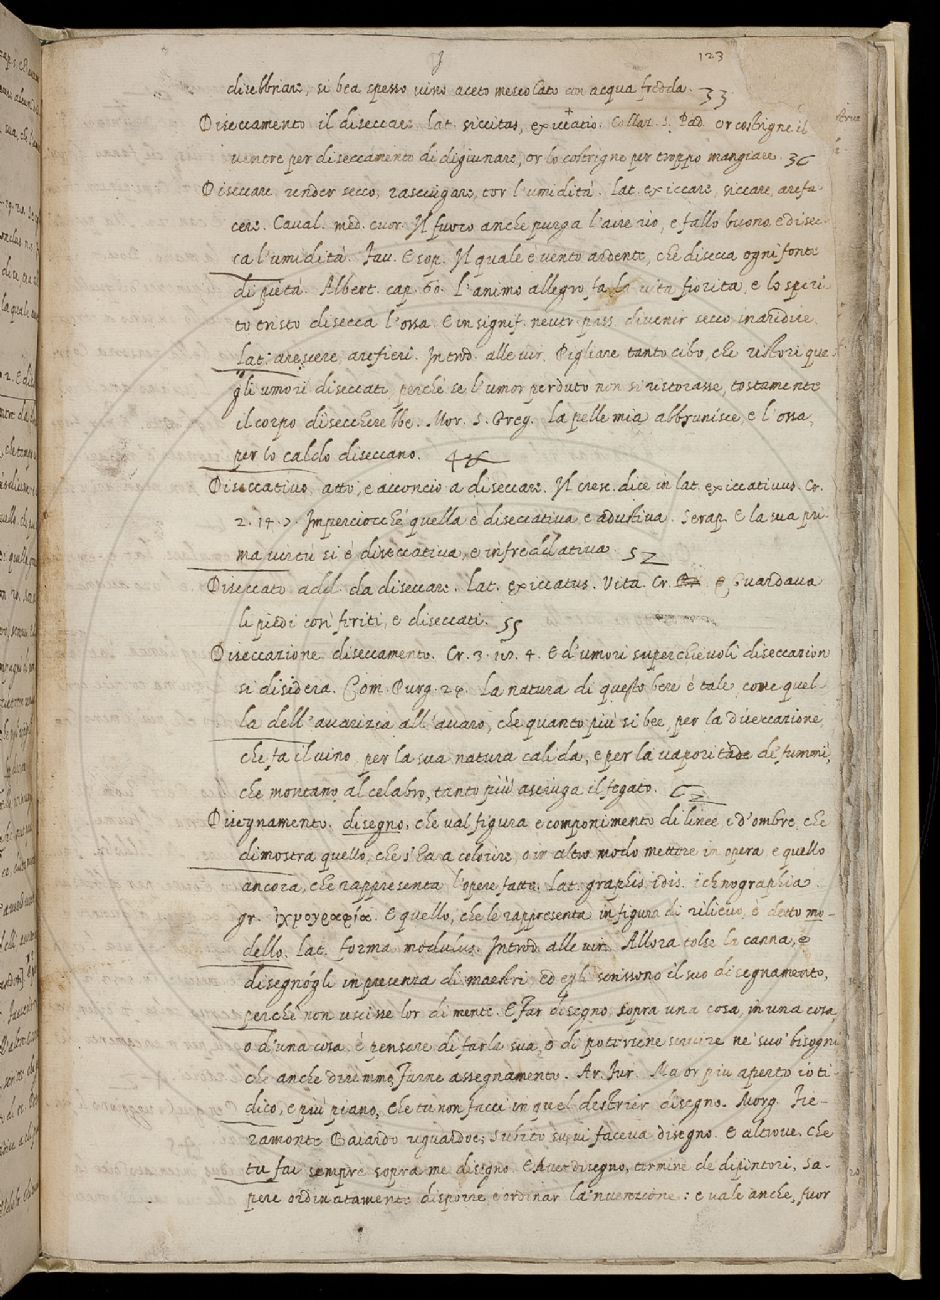 123
disebbriare, si bea spesso vino aceto mescolato con acqua fredda. 33
Diseccamento il diseccare. lat. siccitas, exiccatio. Collaz. S. Pad. Or costrigne il
ventre per diseccamento di digiunare, or lo costrigne per troppo mangiare. 36
Diseccare. render secco, rasciugare, tor l'umidità. lat. exiccare, siccare, arefa-
cere. Caval. med. cuor. Il fuoco anche purga l'aere rio, e fallo buono, e disec-
ca l'umidità. Fav. Esop. Il quale è vento ardente, che disecca ogni fonte
di pietà. Albert. cap. 60. L'animo allegro fa la vita fiorita, e lo spiri
to tristo disecca l'ossa. E in signif. neutr. pass. divenir secco inaridire.
Lat. arescere, arefieri. Introd. alle vir. Pigliare tanto cibo, che ristori que
gli umori diseccati, perchè se l'umor perduto non si ristorasse, tostamente
il corpo diseccherebbe. Mor. S. Greg. La pelle mia abbrunisce, e l'ossa,
per lo caldo diseccano.
Diseccativo, atto, e acconcio a diseccare. Il Cresc. dice in lat. exiccativus. Cr.
2. 14. 2 Imperciocchè quella è diseccativa e adustiva. Serap. E la sua pri-
ma vertù si è diseccativa, e infreddativa. 52
Diseccato add. da diseccare. lat. exiccatus. Vita. Cr. E guardava
li piedi così firiti, e diseccati. 55
Diseccazione diseccamento. Cr. 3. 4. E d'umori superchievoli diseccazion
si disidera. Com. Purg. 24. La natura di questo bere è tale, come quel
la dell'avarizia all'avaro, che quanto più si bee, per la diseccazione,
che fa il vino, per la sua natura calida, e per la vaporitade di fummi,
che montano al celabro, tanto più asciuga il fegato. 62
Disegnamento. disegno, che val figura e componimento di linee e d'ombre, che
dimostra quello, che s'ha a colorire, o in altro modo mettere in opera, e quello
ancora, che rappresenta l'opere fatte. Lat. graphis, idis. ichnographia.
gr. ἰχνογραφία. E quello, che le rappresenta in figura di rilievo, è detto mo-
dello. Lat. forma modulus. Introd. alle vir. Allora tolse la canna, e
disegnógli in presenza di maestri, ed egli scrissono il suo disegnamento,
perchè non uscisse lor di mente. E Far disegno, sopra una cosa, in una cosa,
o d'una cosa. è pensare di farla sua, o di potersene servire ne' suo' bisogni
che anche diremmo, Farne assegnamento. Ar. Fur. Ma or più aperto io ti
dico, e più piano, Che tu non facci in quel destrier disegno. Morg. Fie-
ramonte Baiardo riguardoe; Subito su vi faceva disegno. E altrove. Che
tu fai sempre sopra me disegno. E Aver disegno, termine de dipintori, Sa-
pere ordinatamente disporre e ordinar la 'nvenzione: e vale anche, fuor